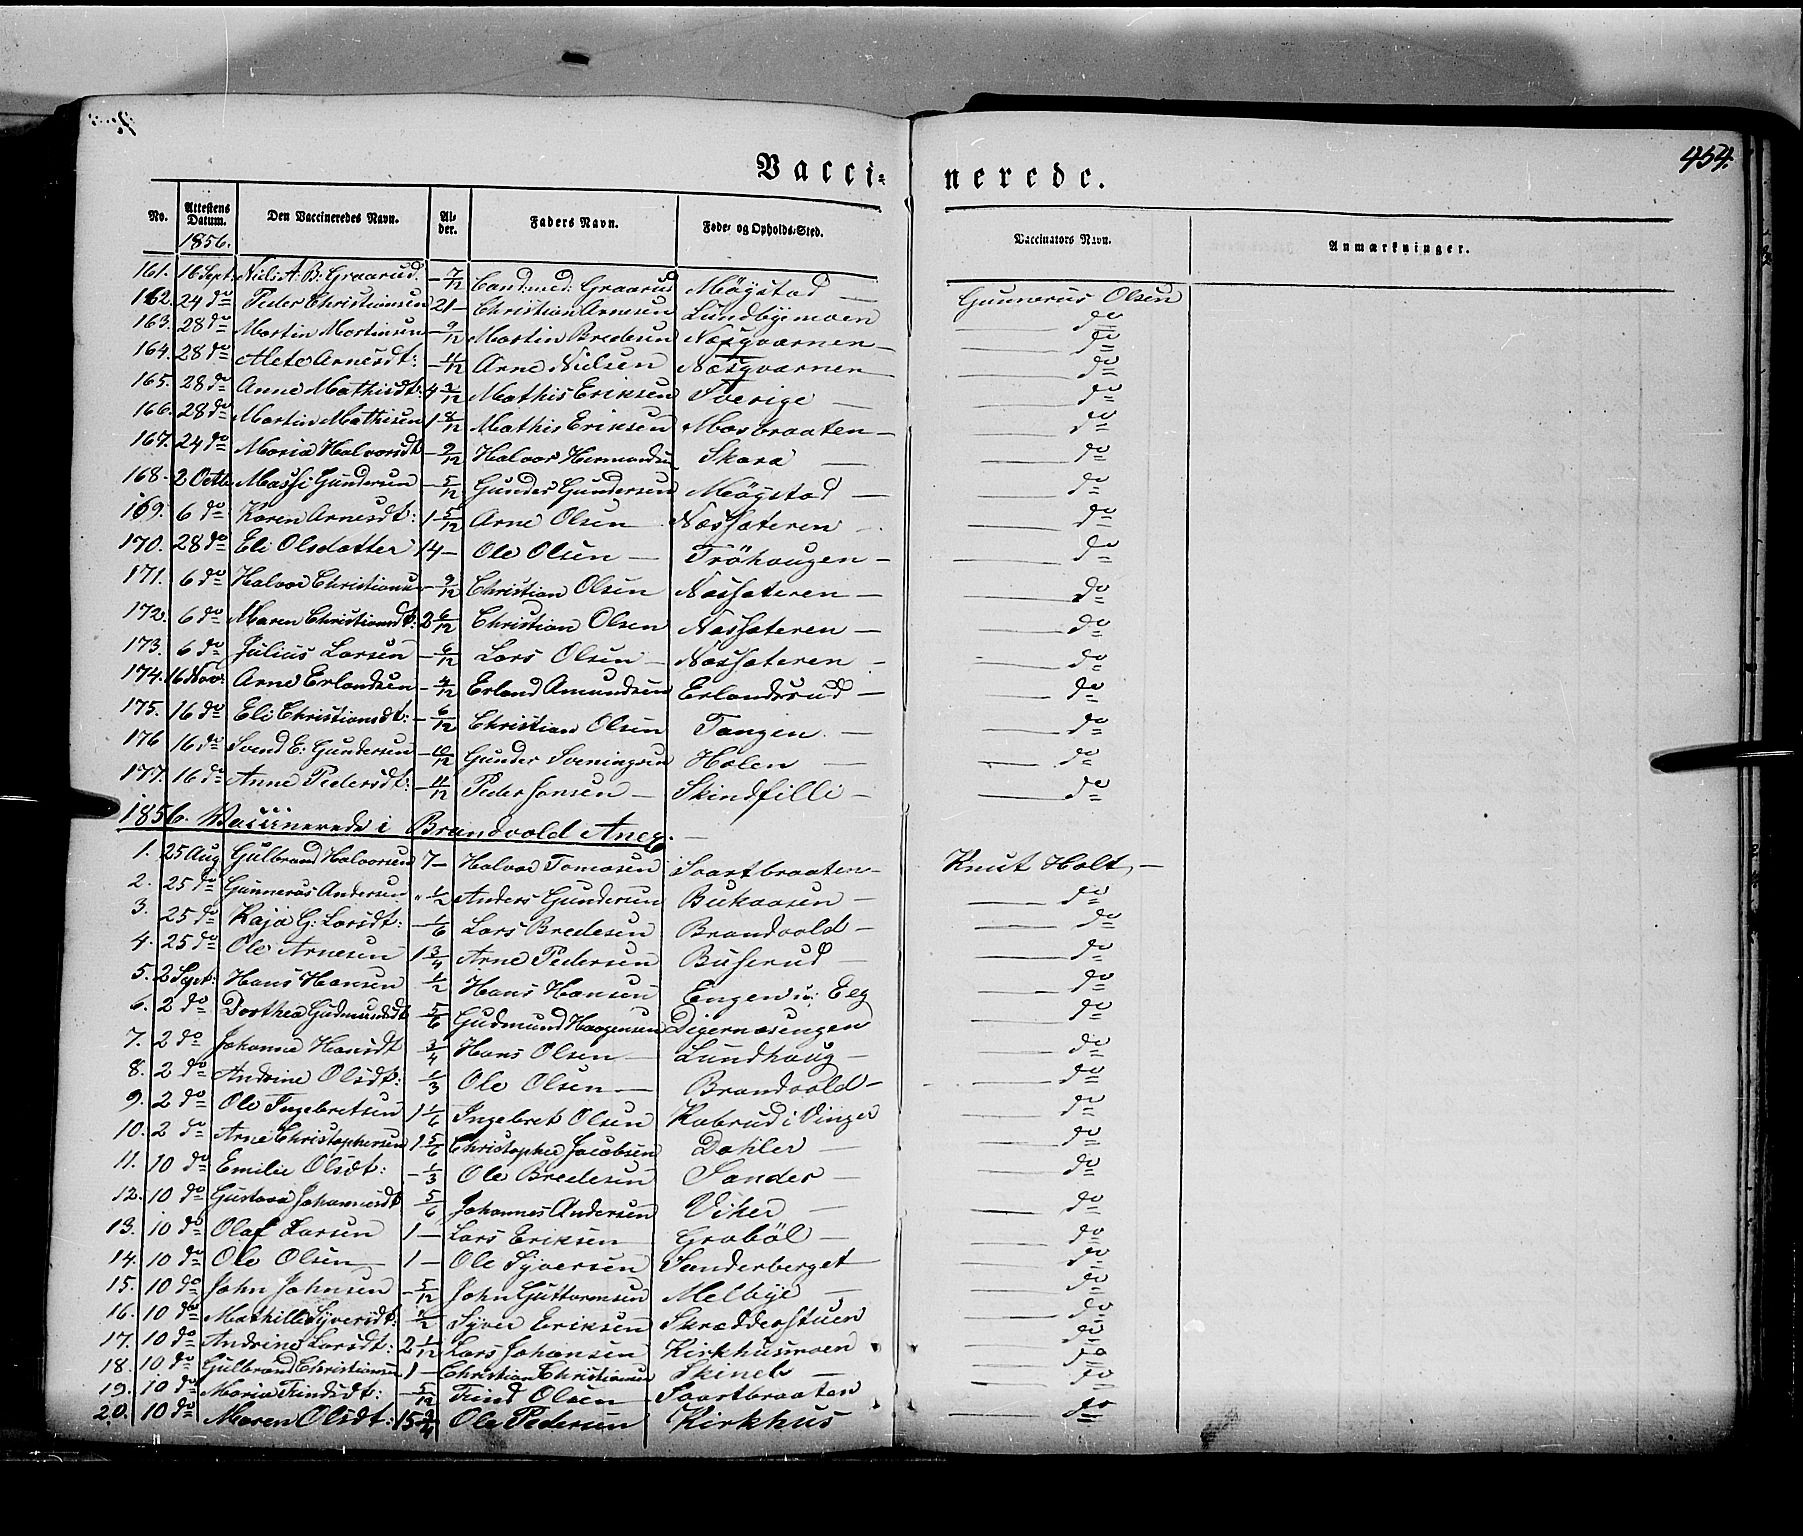 454.
Vacci= nerede.
No. Attestens Datum. 1856. Den Vaccineredes Navn. Al= der. Faders Navn. Føde= og Opholds=Sted. Vaccinators Navn. Anmærkninger.
161. 16 Sept. Nils A. B. Graarud. - 7/12 Cand: med: Graarud Møystad —
162. 24 do Peder Christiansen 21 - Christian Arnesen Lundbyemoen Gunnerus Olsen
163. 28 do Martin Martinsen - 9/12 Martin Bredesen Næsqværnen — do
164. 28 do Alete Arnesdt: - 11/12 Arne Nielsen Næsqværnen — do
165. 28 do Anne Mathisdt: 4 3/12 Mathis Eriksen Sverige — do
166. 28 do Martin Mathisen 1 8/12 Mathis Eriksen Mosbraaten — do
167. 24 do Maria Halvorsdt - 9/12 Halvor Hermandsen Skara — do
168. 2 Octb. Massi Gundersen - 5/12 Gunder Gundersen Møystad — do
169. 6 do Karen Arnesdt: 1 5/12 Arne Olsen Næssæteren — do
170. 28 do Eli Olsdatter 14 - Ole Olsen — Tröhaugen — do
171. 6 do Halvor Christiansen - 9/12 Christian Olsen Næssæteren — do
172. 6 do Maren Christiansdt: 2 6/12 Christian Olsen Næssæteren — do
173. 6 do Julius Larsen - 6/12 Lars Olsen — Næssæteren — do
174. 16 Nov: Arne Erlandsen - 4/12 Erland Amundsen Erlandsrud — do
175. 16 do Eli Christiansdt: - 6/12 Christian Olsen Tangen — do
176 16 do Svend E: Gundersen - 10/12 Gunder Sveningsen Holen — do
177. 16 do Anne Pedersdt: - 11/12 Peder Jonsen — Skindfilli — do
1856. Vaccinerede i Brandvold Anex. —
1. 25 Aug Gulbrand Halvorsen 7 - Halvor Tomasen Svartbraaten — Knut Holt —
2. 25 do Gunnerus Andersen " 1/2 Anders Gundersen Bukaasen — do
3. 25 do Kaja G: Larsdt: - 1/6 Lars Bredesen Brandvold — do
4. 25 do Ole Arnesen 1 3/4 Arne Pedersen Buserud — do
5. 2 Sept: Hans Hansen 1/2 Hans Hansen Engen u: Elg do
6. 2 do Dorthea Gudmundsdt 5/6 Gudmund Haagensen Digernæsengen do
7. 2 do Johanne Hansdt 3/4 Hans Olsen — Lundhaug — do
8. 2 do Andrine Olsdt: - 1/3 Ole Olsen — Brandvold — do
9. 2 do Ole Ingebretsen 1 1/6 Ingebret Olsen Kabrud i Vinger do
10. 2 do Arne Christophersen 1 5/6 Christopher Jacobsen Dahler — do
11. 10 do Emilie Olsdt: - 1/3 Ole Bredesen Sander — do
12. 10 do Gustava Johannesdt 5/6 Johannes Andersen Viker — do
13. 10 do Olaf Larsen 1 — Lars Eriksen Grabøl — do
14. 10 do Ole Olsen 1 — Ole Syversen Sanderberget do
15. 10 do John Johnsen - 5/12 John Guttormsen Melbye — do
16. 10 do Mathilde Syversdt: 1/2 Syver Eriksen Skrædderstuen do
17. 10 do Andrine Larsdt: 2 1/12 Lars Johansen Kirkhusmoen do
18. 10 do Gulbrand Christiansen 1 — Christian Christiansen Skinels — do
19. 10 do Maria Findsdt: - 5/12 Find Olsen — Svartbraaten do
20. 10 do Maren Olsdt: 15 3/4 Ole Pedersen Kirkhus do